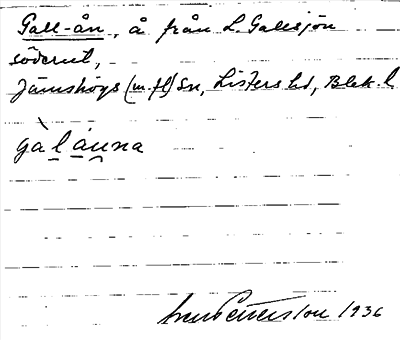 Gall-ån, å från L. Gallsjön
söderut,
Jämshögs (m.fl) Sn, Listers hd, Blek. l
gàlánna
1936